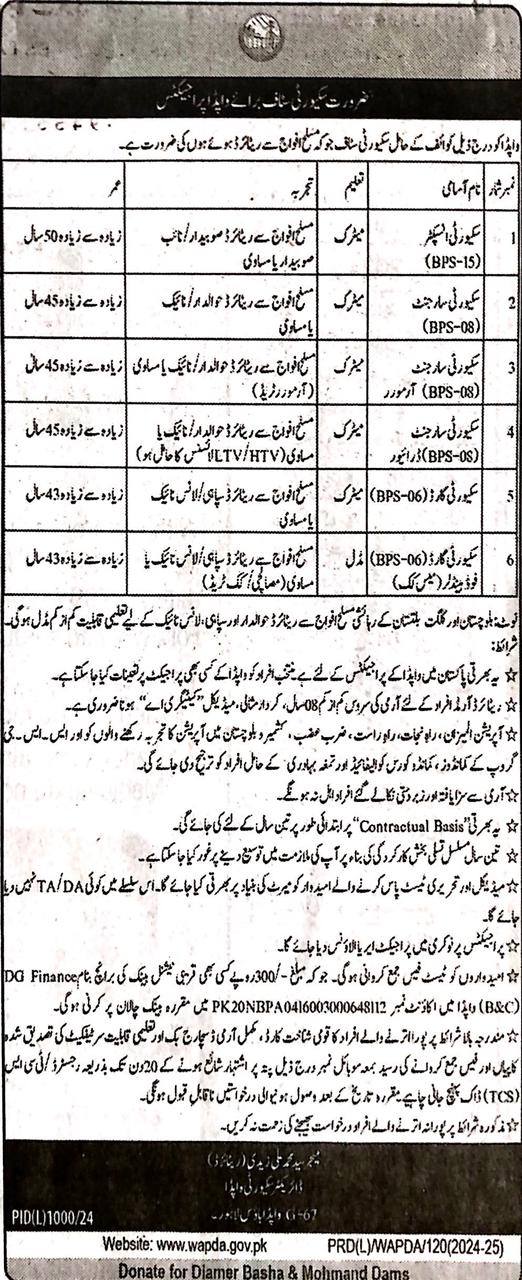 ضرورت سکیورٹی سٹاف برائے واپڈا پراجیکٹس
واپڈا کو درج ذیل کوائف کے حامل سکیورٹی سٹاف جو کہ مسلح افواج سے ریٹائرڈ ہوئے ہوں کی ضرورت ہے۔
نمبر شمار | نام آسامی | تعلیم | تجربہ | عمر
1 | سکیورٹی انسپکٹر (BPS-15) | میٹرک | مسلح افواج سے ریٹائرڈ صوبیدار/نائب صوبیدار یا مساوی | زیادہ سے زیادہ 50 سال
2 | سکیورٹی سارجنٹ (BPS-08) | میٹرک | مسلح افواج سے ریٹائرڈ حوالدار/نائیک یا مساوی | زیادہ سے زیادہ 45 سال
3 | سکیورٹی سارجنٹ (BPS-08) آرمورر | میٹرک | مسلح افواج سے ریٹائرڈ حوالدار/نائیک یا مساوی (آرمورر ٹریڈ) | زیادہ سے زیادہ 45 سال
4 | سکیورٹی سارجنٹ (BPS-08) ڈرائیور | میٹرک | مسلح افواج سے ریٹائرڈ حوالدار/نائیک یا مساوی (LTV/HTV لائسنس کا حامل ہو) | زیادہ سے زیادہ 45 سال
5 | سکیورٹی گارڈ (BPS-06) | میٹرک | مسلح افواج سے ریٹائرڈ سپاہی/لانس نائیک یا مساوی | زیادہ سے زیادہ 43 سال
6 | سکیورٹی گارڈ (BPS-06) فوڈ ہینڈلر (میس کک) | مڈل | مسلح افواج سے ریٹائرڈ سپاہی/لانس نائیک یا مساوی (مصالچی/کک ٹریڈ) | زیادہ سے زیادہ 43 سال
نوٹ: بلوچستان اور گلگت بلتستان کے رہائشی مسلح افواج سے ریٹائرڈ حوالدار اور سپاہی، لانس نائیک کے لیے تعلیمی قابلیت کم از کم مڈل ہوگی۔
شرائط:
☆ یہ بھرتی پاکستان میں واپڈا کے پراجیکٹس کے لئے ہے منتخب افراد کو واپڈا کے کسی بھی پراجیکٹ پر تعینات کیا جاسکتا ہے۔
☆ ریٹائرڈ آرمڈ افراد کے لئے آرمی کی سروس کم از کم 08 سال، کردار مثالی، میڈیکل "کیٹیگری اے" ہونا ضروری ہے۔
☆ آپریشن المیزان، راہ نجات، راہ راست، ضرب عضب، کشمیر و بلوچستان میں آپریشن کا تجربہ رکھنے والوں کو اور ایس۔ایس۔جی
گروپ کے کمانڈوز، کمانڈو کورس کوالیفائیڈ اور تمغہ بہادری کے حامل افراد کو ترجیح دی جائے گی۔
☆ آرمی سے سزا یافتہ اور زبردستی نکالے گئے افراد اہل نہ ہونگے۔
☆ یہ بھرتی "Contractual Basis" پر ابتدائی طور پر تین سال کے لئے کی جائے گی۔
☆ تین سال مسلسل تسلی بخش کارکردگی کی بناء پر آپ کی ملازمت میں توسیع دینے پر غور کیا جاسکتا ہے۔
☆ میڈیکل اور تحریری ٹیسٹ پاس کرنے والے امیدوار کو میرٹ کی بنیاد پر بھرتی کیا جائے گا۔ اس سلسلے میں کوئی TA/DA نہیں دیا
جائے گا۔
☆ پراجیکٹس پر نوکری میں پراجیکٹ ایریا الاؤنس دیا جائے گا۔
☆ امیدواروں کو ٹیسٹ فیس جمع کروانی ہوگی۔ جو کہ مبلغ -/300 روپے کسی بھی قریبی نیشنل بینک کی برانچ بنام DG Finance
(B&C) واپڈا میں اکاؤنٹ نمبر PK20NBPA0416003000648112 میں مقررہ بینک چالان پر کرنی ہوگی۔
☆ مندرجہ بالا شرائط پر پورا اترنے والے افراد کا قومی شناخت کارڈ، مکمل آرمی ڈسچارج بک اور تعلیمی قابلیت سرٹیفکیٹ کی تصدیق شدہ
کاپیاں اور فیس جمع کروانے کی رسید بمعہ موبائل نمبر درج ذیل پتہ پر اشتہار شائع ہونے کے 20 دن تک بذریعہ رجسٹرڈ/ٹی سی ایس
(TCS) ڈاک پہنچ جانی چاہیے مقررہ تاریخ کے بعد وصول ہونیوالی درخواستیں ناقابل قبول ہونگی۔
☆ مذکورہ شرائط پر پورا نہ اترنے والے افراد درخواست بھیجنے کی زحمت نہ کریں۔
میجر سید محمد علی زیدی (ریٹائرڈ)
ڈائریکٹر سکیورٹی واپڈا
G-67 واپڈا ہاؤس لاہور۔
PID(L)1000/24
Website: www.wapda.gov.pk PRD(L)/WAPDA/120(2024-25)
Donate for Diamer Basha & Mohmand Dams